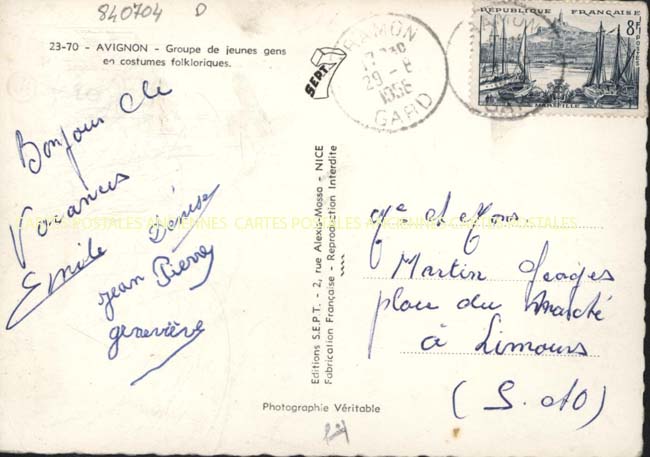 840704 D
23-70 - AVIGNON - Groupe de jeunes gens
en costumes folkloriques.
SEPT
ARAMON
17 H30
29-8
1956
GARD
REPUBLIQUE FRANÇAISE
8F
POSTES
MARSEILLE
Bonjour de
Vacances
Emile Denise
jean Pierre
geneviève
Editions S.E.P.T. - 2, rue Alexis-Mossa - NICE
Fabrication Française - Reproduction Interdite
CARTES POSTALES ANCIENNES CARTES POSTALES ANCIENNES CARTES POSTALES
Me et Mons.
Martin Georges
place du Marché
à Limours
(S. et O)
Photographie Véritable